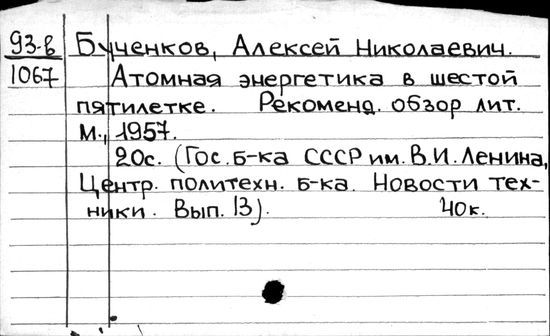 93-в Бученков, Алексей Николаевич.
1067 Атомная энергетика в шестой
пятилетке. Рекоменд. обзор лит.
М., 1957.
20с. (Гос. б-ка СССР им. В.И. Ленина,
Центр. политехн. б-ка. Новости тех-
ники. Вып. 13). 40к.